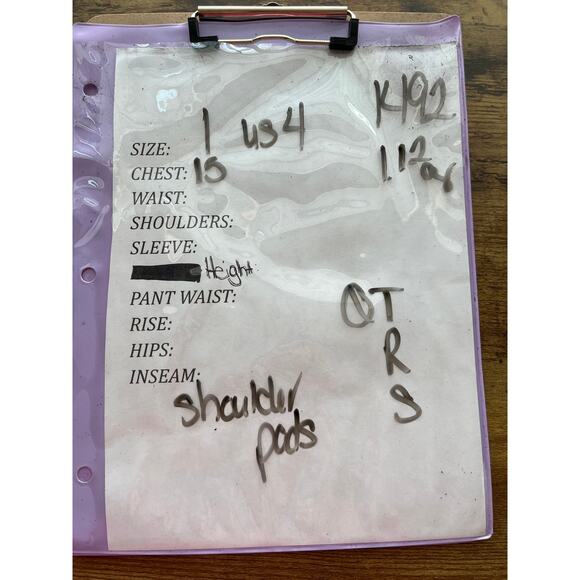 SIZE: 1 US4 K192
CHEST: 15 1.12
WAIST:
SHOULDERS:
SLEEVE:
Height
PANT WAIST: QT
RISE: R
HIPS: S
INSEAM:
shoulder
pads